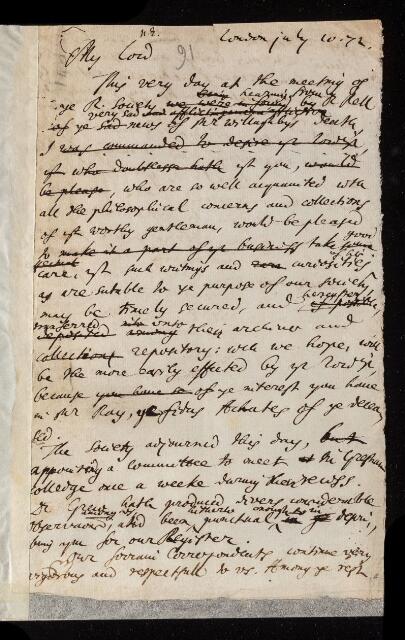 London July 10. 72.
My Lord
91
This very day at the meeting of
ye R. Society we were hearing from
very sad
of ye sad news of Mr Willughbys death,
I was commanded to desire yr Lordsp,
yt who doubtlesse hath yt you, would
be please, who are so well acquainted with
all the philosophical concerns and collections
of yt worthy gentleman, would be pleased
to make it a part of yr business take good
care, yt such writings and curiosities
as are sutable to ye purpose of our Society,
may be timely secured, and hereafter
transferrd into their archives and
collections repository: wch we hope, will
be the more easily effected by yr Lordsp,
because you have so of ye interest you have
in Mr Ray, ye fidus Achates of ye decea
sed.
The Society adjourned this day, but
appointing a committee to meet at in Gresham
Colledge once a weeke during their recess.
Dr Grew hath produced divers considerable
observations, and been punctual in ye
ym for our Register.
Our forrain Correspondents continue very
vigorous and respectfull to us. Among ye rest